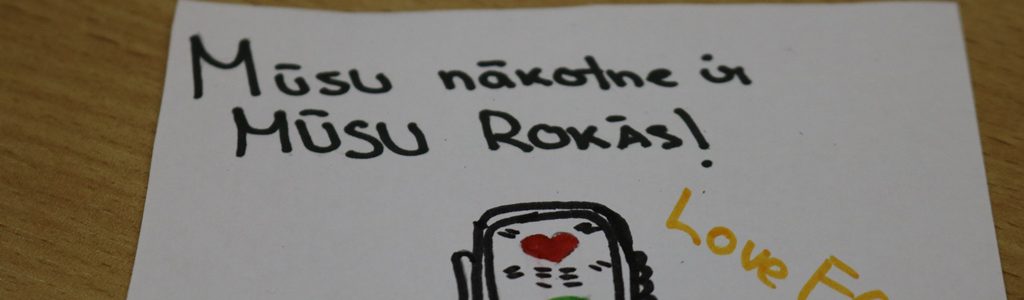 Mūsu nākotne ir
MŪSU ROKĀS!
Love